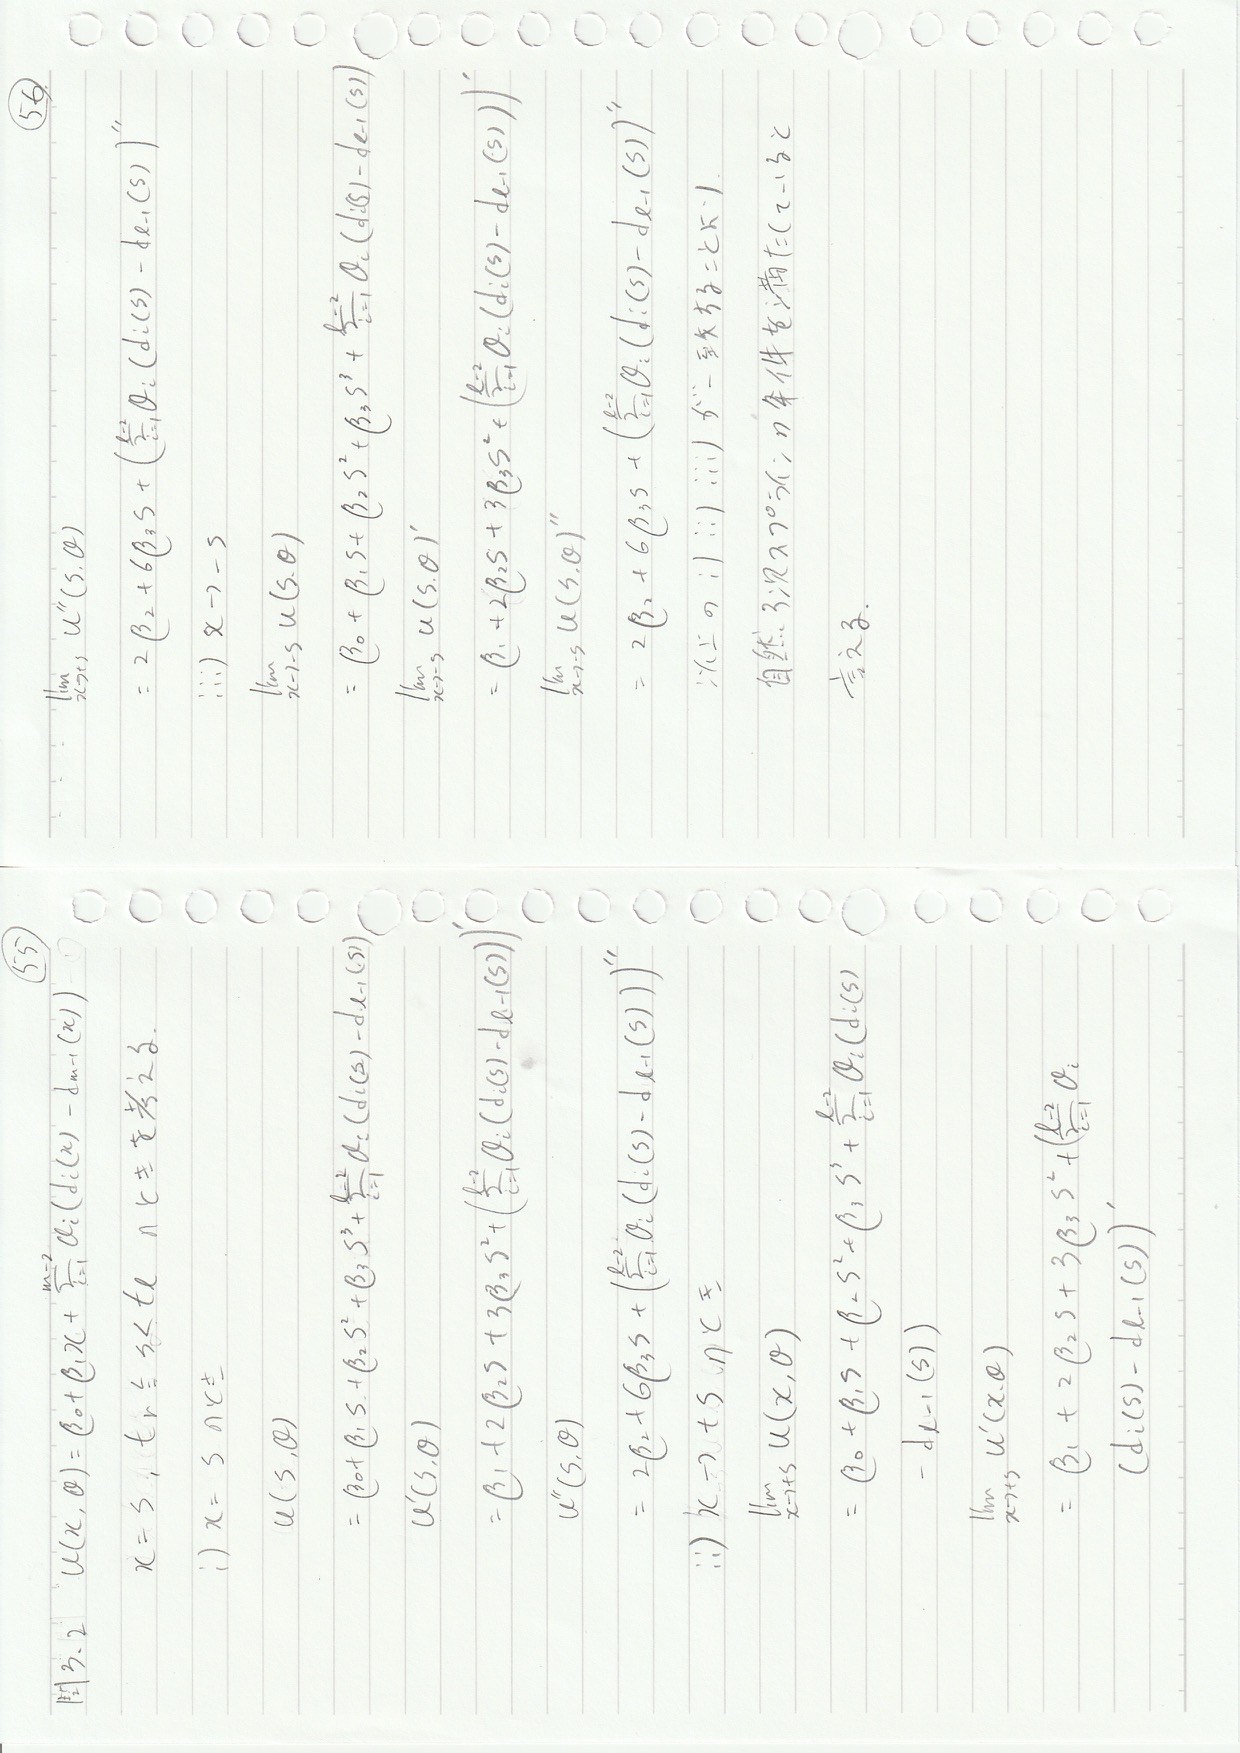 55
問3.2 u(x,θ) = β0+β1x+ Σ_{i=1}^{m-2} θi(di(x) - dm-1(x))
x = s, tr ≦ s < tl のときを考える.
i) x = s のとき
u(s,θ)
= β0+β1s+β2s²+β3s³+ Σ_{i=1}^{l-2} θi(di(s)-dl-1(s))
u'(s,θ)
= β1+2β2s+3β3s²+(Σ_{i=1}^{l-2} θi(di(s)-dl-1(s)))'
u''(s,θ)
= 2β2+6β3s+(Σ_{i=1}^{l-2} θi(di(s)-dl-1(s)))''
ii) x→+s のとき
lim_{x→+s} u(x,θ)
= β0+β1s+β2s²+β3s³+ Σ_{i=1}^{l-2} θi(di(s)
-dl-1(s))
lim_{x→+s} u'(x,θ)
= β1+2β2s+3β3s²+(Σ_{i=1}^{l-2} θi
(di(s)-dl-1(s)))'
56
lim_{x→+s} u''(s,θ)
= 2β2+6β3s+(Σ_{i=1}^{l-2} θi(di(s)-dl-1(s))''
iii) x→-s
lim_{x→-s} u(s,θ)
= β0+β1s+β2s²+β3s³+ Σ_{i=1}^{l-2} θi(di(s)-dl-1(s))
lim_{x→-s} u(s,θ)'
= β1+2β2s+3β3s²+(Σ_{i=1}^{l-2} θi(di(s)-dl-1(s)))'
lim_{x→-s} u(s,θ)''
= 2β2+6β3s+(Σ_{i=1}^{l-2} θi(di(s)-dl-1(s))''
以上の i) ii) iii) が一致することより.
自然3次スプラインの条件を満たしていると
言える.